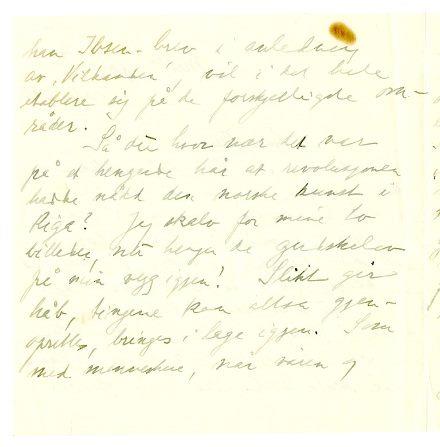 han Ibsen-brev i anledning
av "Vildanden", vil i det hele
etablere sig på de forskjelligste om-
råder.
Så du hvor nær det var
på et hengende hår at revolusjonen
hadde nådd den norske kunst i
Riga? Jeg skalv for mine to
billeder, nu henger de
på min vegg igjen! Slikt gir
håb, tingene kan altså gjen-
oprettes, bringes i lage igjen. Som
med menneskene, når våren